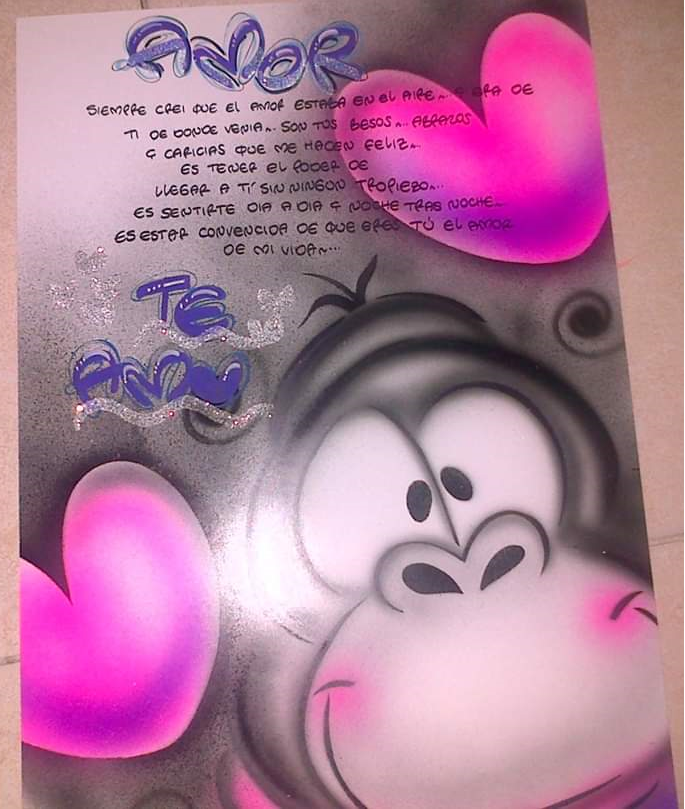 AMOR
SIEMPRE CREI QUE EL AMOR ESTABA EN EL AIRE... ERA DE
TI DE DONDE VENIA... SON TUS BESOS... ABRAZOS
Y CARICIAS QUE ME HACEN FELIZ...
ES TENER EL PODER DE
LLEGAR A TÍ SIN NINGUN TROPIEZO...
ES SENTIRTE DIA A DIA Y NOCHE TRAS NOCHE...
ES ESTAR CONVENCIDA DE QUE ERES TÚ EL AMOR
DE MI VIDA...
TE
AMO